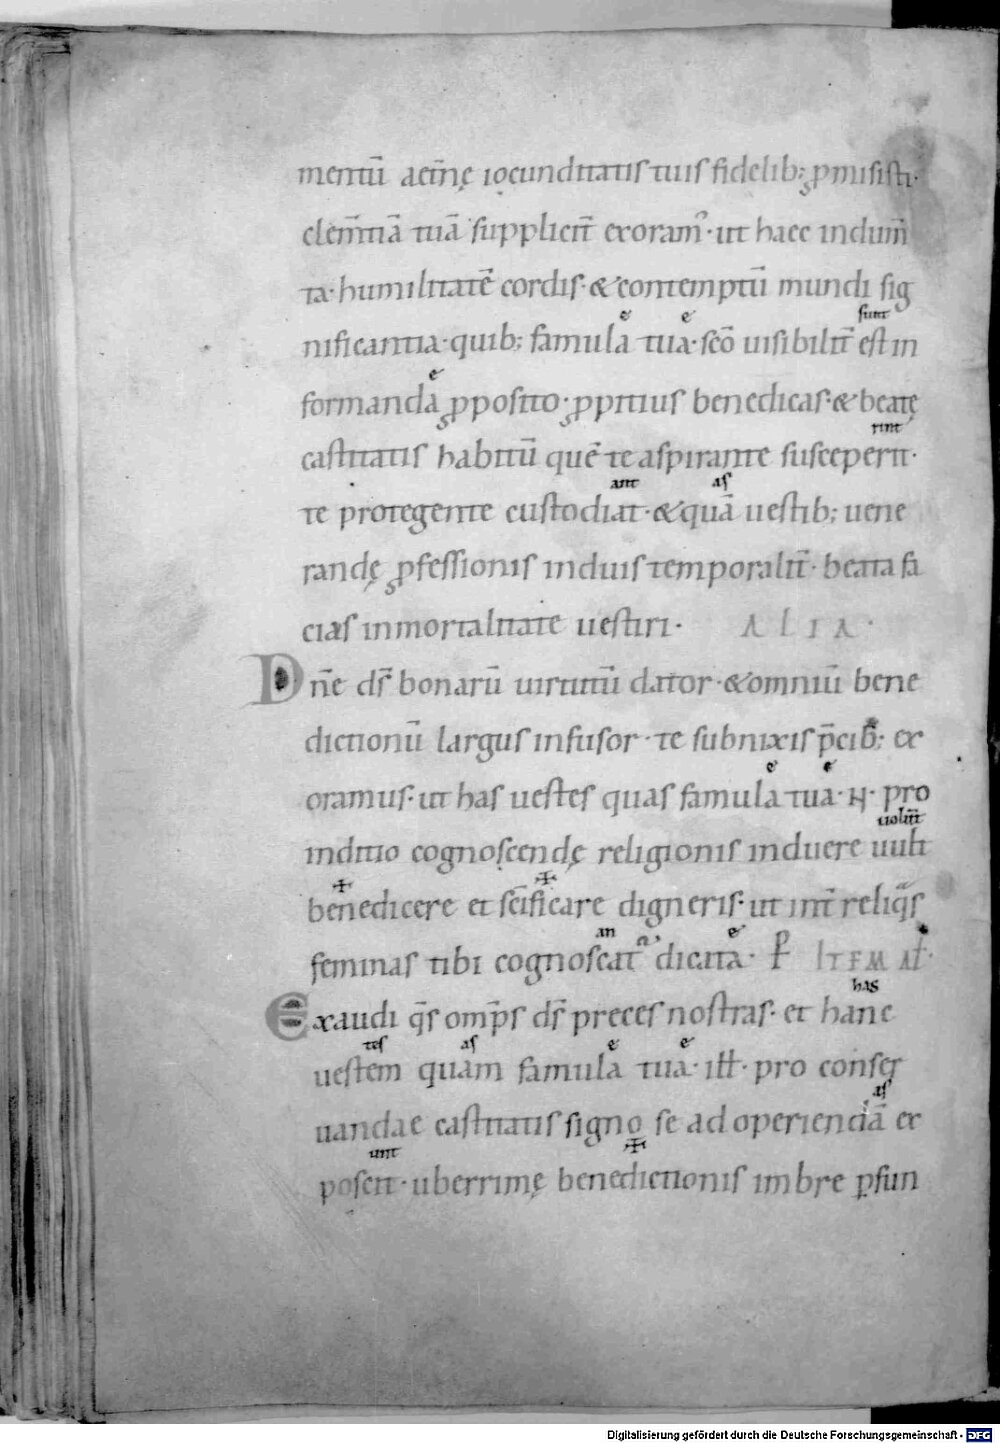 mentū aet̄nę iocunditatis tuis fidelib; ꝓmisisti·
clem̄tiā tuā supplicit̄ exoram᾽· ut haec indum̄
ta· humilitatē cordis· & contemptū mundi sig
sunt
nificantia· quib; famula tua· sc̄o uisibilit̄ est in
e e
formanda ꝓposito· ꝓpitius benedicas· & beatę
e
rint
castitatis habitū quē te aspirante susceperit·
ant as
te protegente custodiat· & quā uestib; uene
randę ꝓfessionis induis temporalit̄· beata fa
cias inmortalitate uestiri· ALIA·
Dn̄e ds̄ bonarū uirtutū dator· & omniū bene
dictionū largus infusor· te subnixis p̄cib; ex
e e
oramus· ut has uestes quas famula tua· N· pro
uolūt
inditio cognoscendę religionis induere uult
✢ ✢
benedicere et sc̄ificare digneris· ut int̄ reliq̄s
an e
feminas tibi cognoscat᾽ dicata· P̄ ITEM AL̄·
has
Exaudi q̄s omp̄s ds̄ preces nostras· et hanc
tes as e e
uestem quam famula tua· ill̄· pro conser
as
uandae castitatis signo se ad operiendā ex
unt ✢
poscit· uberrimę benedictionis imbre ꝑfun
Digitalisierung gefördert durch die Deutsche Forschungsgemeinschaft - DFG